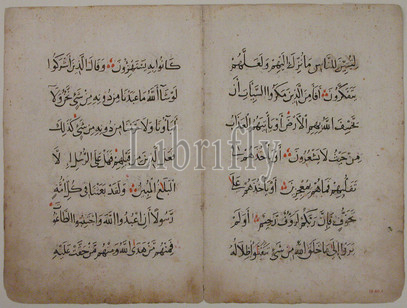 لتبين للناس ما نزل اليهم ولعلهم
يتفكرون افامن الذين مكروا السيئات ان
يخسف الله بهم الارض او ياتيهم العذاب
من حيث لا يشعرون او ياخذهم في
تقلبهم فما هم بمعجزين او ياخذهم على
تخوف فان ربكم لرؤف رحيم اولم
يروا الى ما خلق الله من شيء يتفيؤا ظلاله
كانوا به يستهزؤن وقال الذين اشركوا
لو شاء الله ما عبدنا من دونه من شيء نحن ولا
اباؤنا ولا حرمنا من دونه من شيء كذلك
فعل الذين من قبلهم فهل على الرسل الا
البلاغ المبين ولقد بعثنا في كل امة
رسولا ان اعبدوا الله واجتنبوا الطاغوت
فمنهم من هدى الله ومنهم من حقت عليه
Librifly